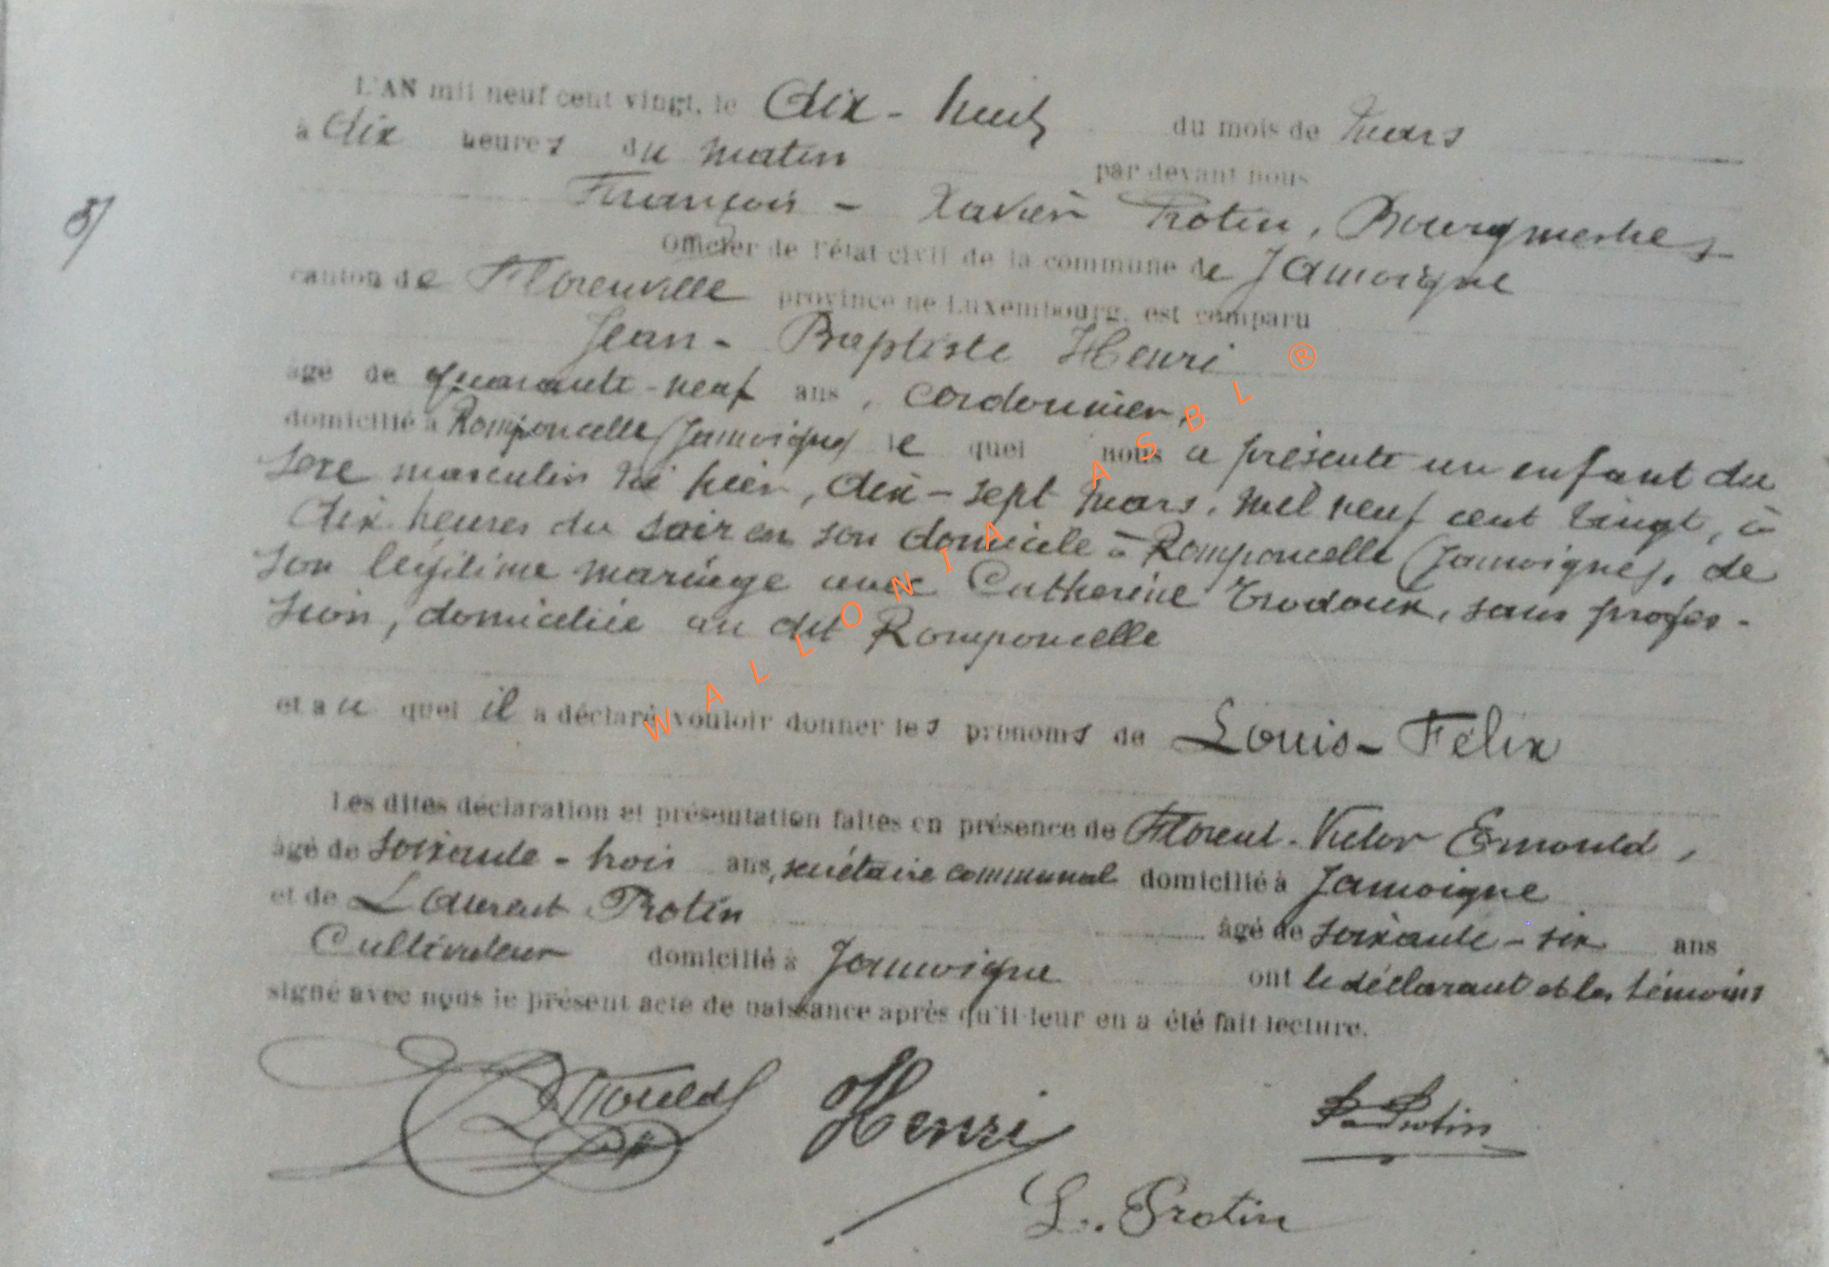 L'AN mil neuf cent vingt, le Dix - huit du mois de Mars
à dix heures du matin par devant nous
François - Xavier Protin, Bourgmestre,
8/
Officier de l'état civil de la commune de Jamoigne
canton de Florenville province de Luxembourg, est comparu
Jean - Baptiste Henri
âgé de quarante-neuf ans, cordonnier,
domicilié à Romponcelle (Jamoigne) le quel nous a présenté un enfant du
sexe masculin né hier, dix-sept mars, mil neuf cent vingt, à
dix heures du soir en son domicile à Romponcelle (Jamoigne), de
son légitime mariage avec Catherine Trodoux, sans profes-
sion, domiciliée au dit Romponcelle
et au quel il a déclaré vouloir donner les prénoms de Louis - Félix
Les dites déclaration et présentation faites en présence de Florent - Victor Ernould,
âgé de soixante - trois ans, secrétaire communal domicilié à Jamoigne
et de Laurent Protin âgé de soixante - six ans
Cultivateur domicilié à Jamoigne ont le déclarant et les témoins
signé avec nous le présent acte de naissance après qu'il leur en a été fait lecture.
Henri
Protin
L. Protin
WALLONIA ASBL ®